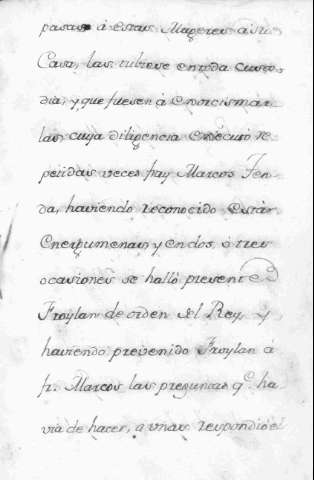 pasar à estas Mugeres à su
Casa, las tubiese en toda custo-
dia, y que fuesen à exorcismar
las cuya diligencia executò re-
petidas veces fray Marcos Ten-
da, haviendo reconocido estàr
Energumenas, y en dos, ò tres
ocasiones se hallò presente
Froylan de orden del Rey, y
haviendo prevenido Froylan à
fr. Marcos las preguntas q.e ha-
via de hacer, a unas respondiò el